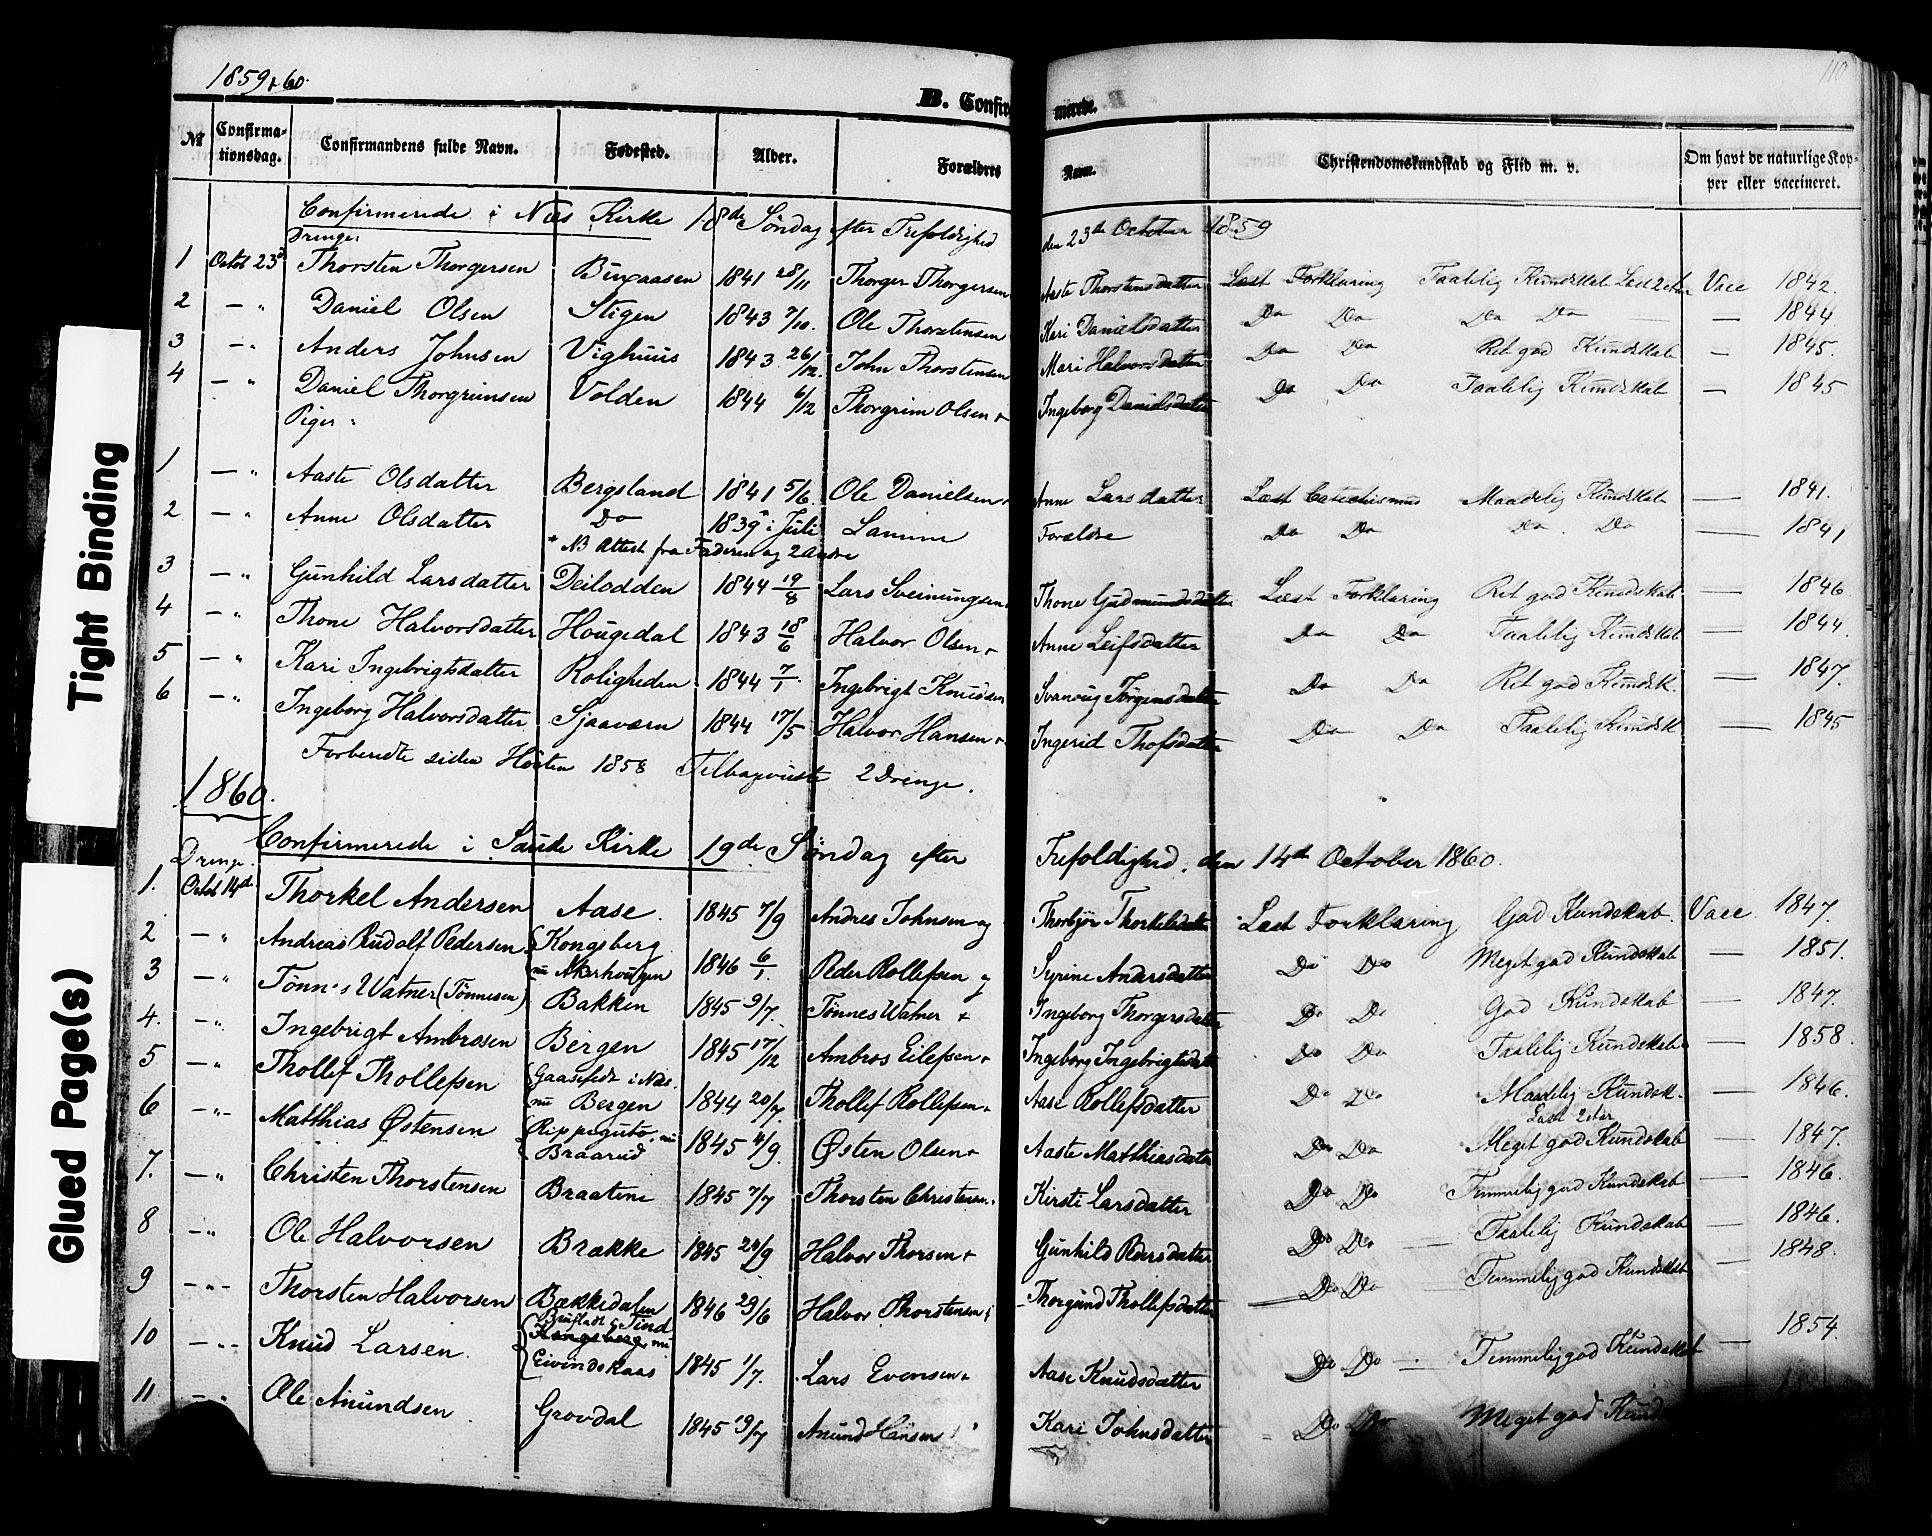 1859 & 60.
110
B. Confirmerede.
No
Confirmationsdag.
Confirmandens fulde Navn.
Fødested.
Alder.
Forældres Navn.
Christendomskundskab og Flid m. v.
Om havt de naturlige Kopper eller vaccineret.
Confirmerede i Næs Kirke 18de Søndag efter Trefoldighed den 23de October 1859
Drenge:
1 Octob 23de Thorsten Thorgersen 1841 28/11 Thorger Thorgersen Aaste Thorstensdatter Læst Forklaring Taalelig Kundskab Læst 2 Vacc 1842.
2 — " Daniel Olsen Stigen 1843 7/10. Ole Thorstensen Kari Danielsdatter Do Do Do Do — 1844
3 — " Anders Johnsen Vighuus 1843 26/12. John Thorstensen Mari Halvorsdatter Do Do Ret god Kundskab — 1845.
4 — " Daniel Thorgrimsen Volden 1844 6/12 Thorgrim Olsen + Ingeborg Danielsdatter Do Do Taalelig Kundskab — 1845
Piger "
1 — " Aaste Olsdatter Bergsland 1841 5/6. Ole Danielsen + Anne Larsdatter Læst Catechismus Maadelig Kundskab — 1841.
2 — " Anne Olsdatter Do 1839* i Juli Samme Forældre Do Do Do Do — 1841
* NB Attest fra Faderen og 2 Andre
3 — " Gunhild Larsdatter Deilodden 1844 19/8 Lars Sveinungsen Thone Gudmundsdatter Læst Forklaring Ret god Kundskab — 1846
4 — " Thone Halvorsdatter Hougedal 1843 18/6 Halvor Olsen + Anne Leifsdatter Do Do Taalelig Kundskab — 1844.
5 — " Kari Ingebrigtsdatter Roligheden 1844 7/1 Ingebrigt Knudsen Svanaug Jørgensdatter Do Do Ret god Kundsk. — 1847.
6 — " Ingeborg Halvorsdatter Sjaaværn 1844 17/5 Halvor Hansen + Ingerid Thofsdatter Do Do Taalelig Kundsk — 1845
Forberedte siden Høsten 1858 Tilbageviste 2 Drenge.
1860.
Confirmerede i Saude Kirke 19de Søndag efter Trefoldighed, den 14de October 1860.
Drenge.
1. Octob 14de Thorkel Andersen Aase. 1845 7/9 Andres Johnsen og Thorbjør Thorkelsdatter Læst Forklaring God Kundskab. Vacc 1847.
2 — " Andreas Rudolf Pedersen { Kongsberg nu Akerhougen 1846 6/1 Peder Rollefsen og Syrine Andersdatter Do Do Meget god Kundskab — 1851.
3 — " Tønnes Watner (Tønnesen) Bakken 1845 9/7. Tønnes Watner + Ingeborg Thorgersdatter Do Do God Kundskab — 1847.
4. — " Ingebrigt Ambrosen Bergen 1845 17/12 Ambros Eilefsen + Ingeborg Ingebrigtsdat Do Do Taalelig Kundskab — 1858.
5 — " Thollef Thollefsen { Gaasefedt i Næs. nu Bergen 1844 20/7. Thollef Rollefsen + Aase Rollefsdatter Do Do Maadelig Kundsk. — 1846.
Læst 2
6 — " Matthias Østensen { nu Braarud 1845 4/9. Østen Olsen + Aaste Matthiasdatter Do Do Meget god Kundskab — 1847.
7. — " Christen Thorstensen Braatene 1845 7/7 Thorsten Christensen + Kirsti Larsdatter Do Do Temmelig god Kundskab — 1846.
8 — " Ole Halvorsen Brække 1845 24/9 Halvor Thorsen + Gunhild Pedersdatter Do Do — Taalelig Kundskab — 1846.
9 — " Thorsten Halvorsen Bækkedalen 1846 29/6 Halvor Thorstensen Thorgund Thollefsdatter Do Do Temmelig god Kundskab — 1848.
10 — " Knud Larsen. { i Tind Kongsberg, nu Eivindskaas 1845 1/7. Lars Evensen + Aase Knudsdatter Do Do — Temmelig god Kundskab — 1854.
11 — " Ole Anundsen. Grovdal 1845 19/7 Anund Hansen Kari Johnsdatter Do Do Meget god
Tight Binding
Glued Page(s)